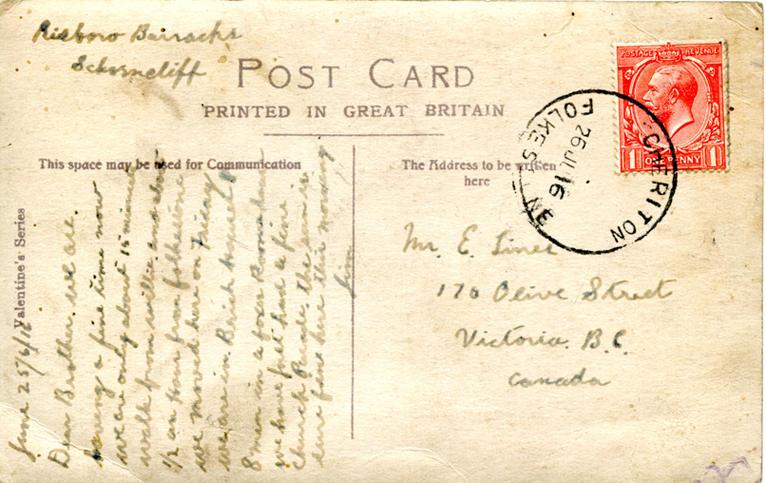 Risboro Barracks
Schorncliff
POST CARD
PRINTED IN GREAT BRITAIN
This space may be used for Communication
The Address to be written
here
Valentine's Series
POSTAGE REVENUE
1 ONE PENNY 1
CHERITON
FOLKESTONE
26 JU 16
June 25/6/16
Dear Brother we are
having a fine time now
we are only about 15 minutes
walk from willie and about
1/2 an hour from folkestone
we moved here on Friday
we are in Brick
8 men in a
we have just had a fine
Church Parade the sun is
fine here this morning
Jim
Mr. E. Lines
176 Olive Street
Victoria B.C.
Canada